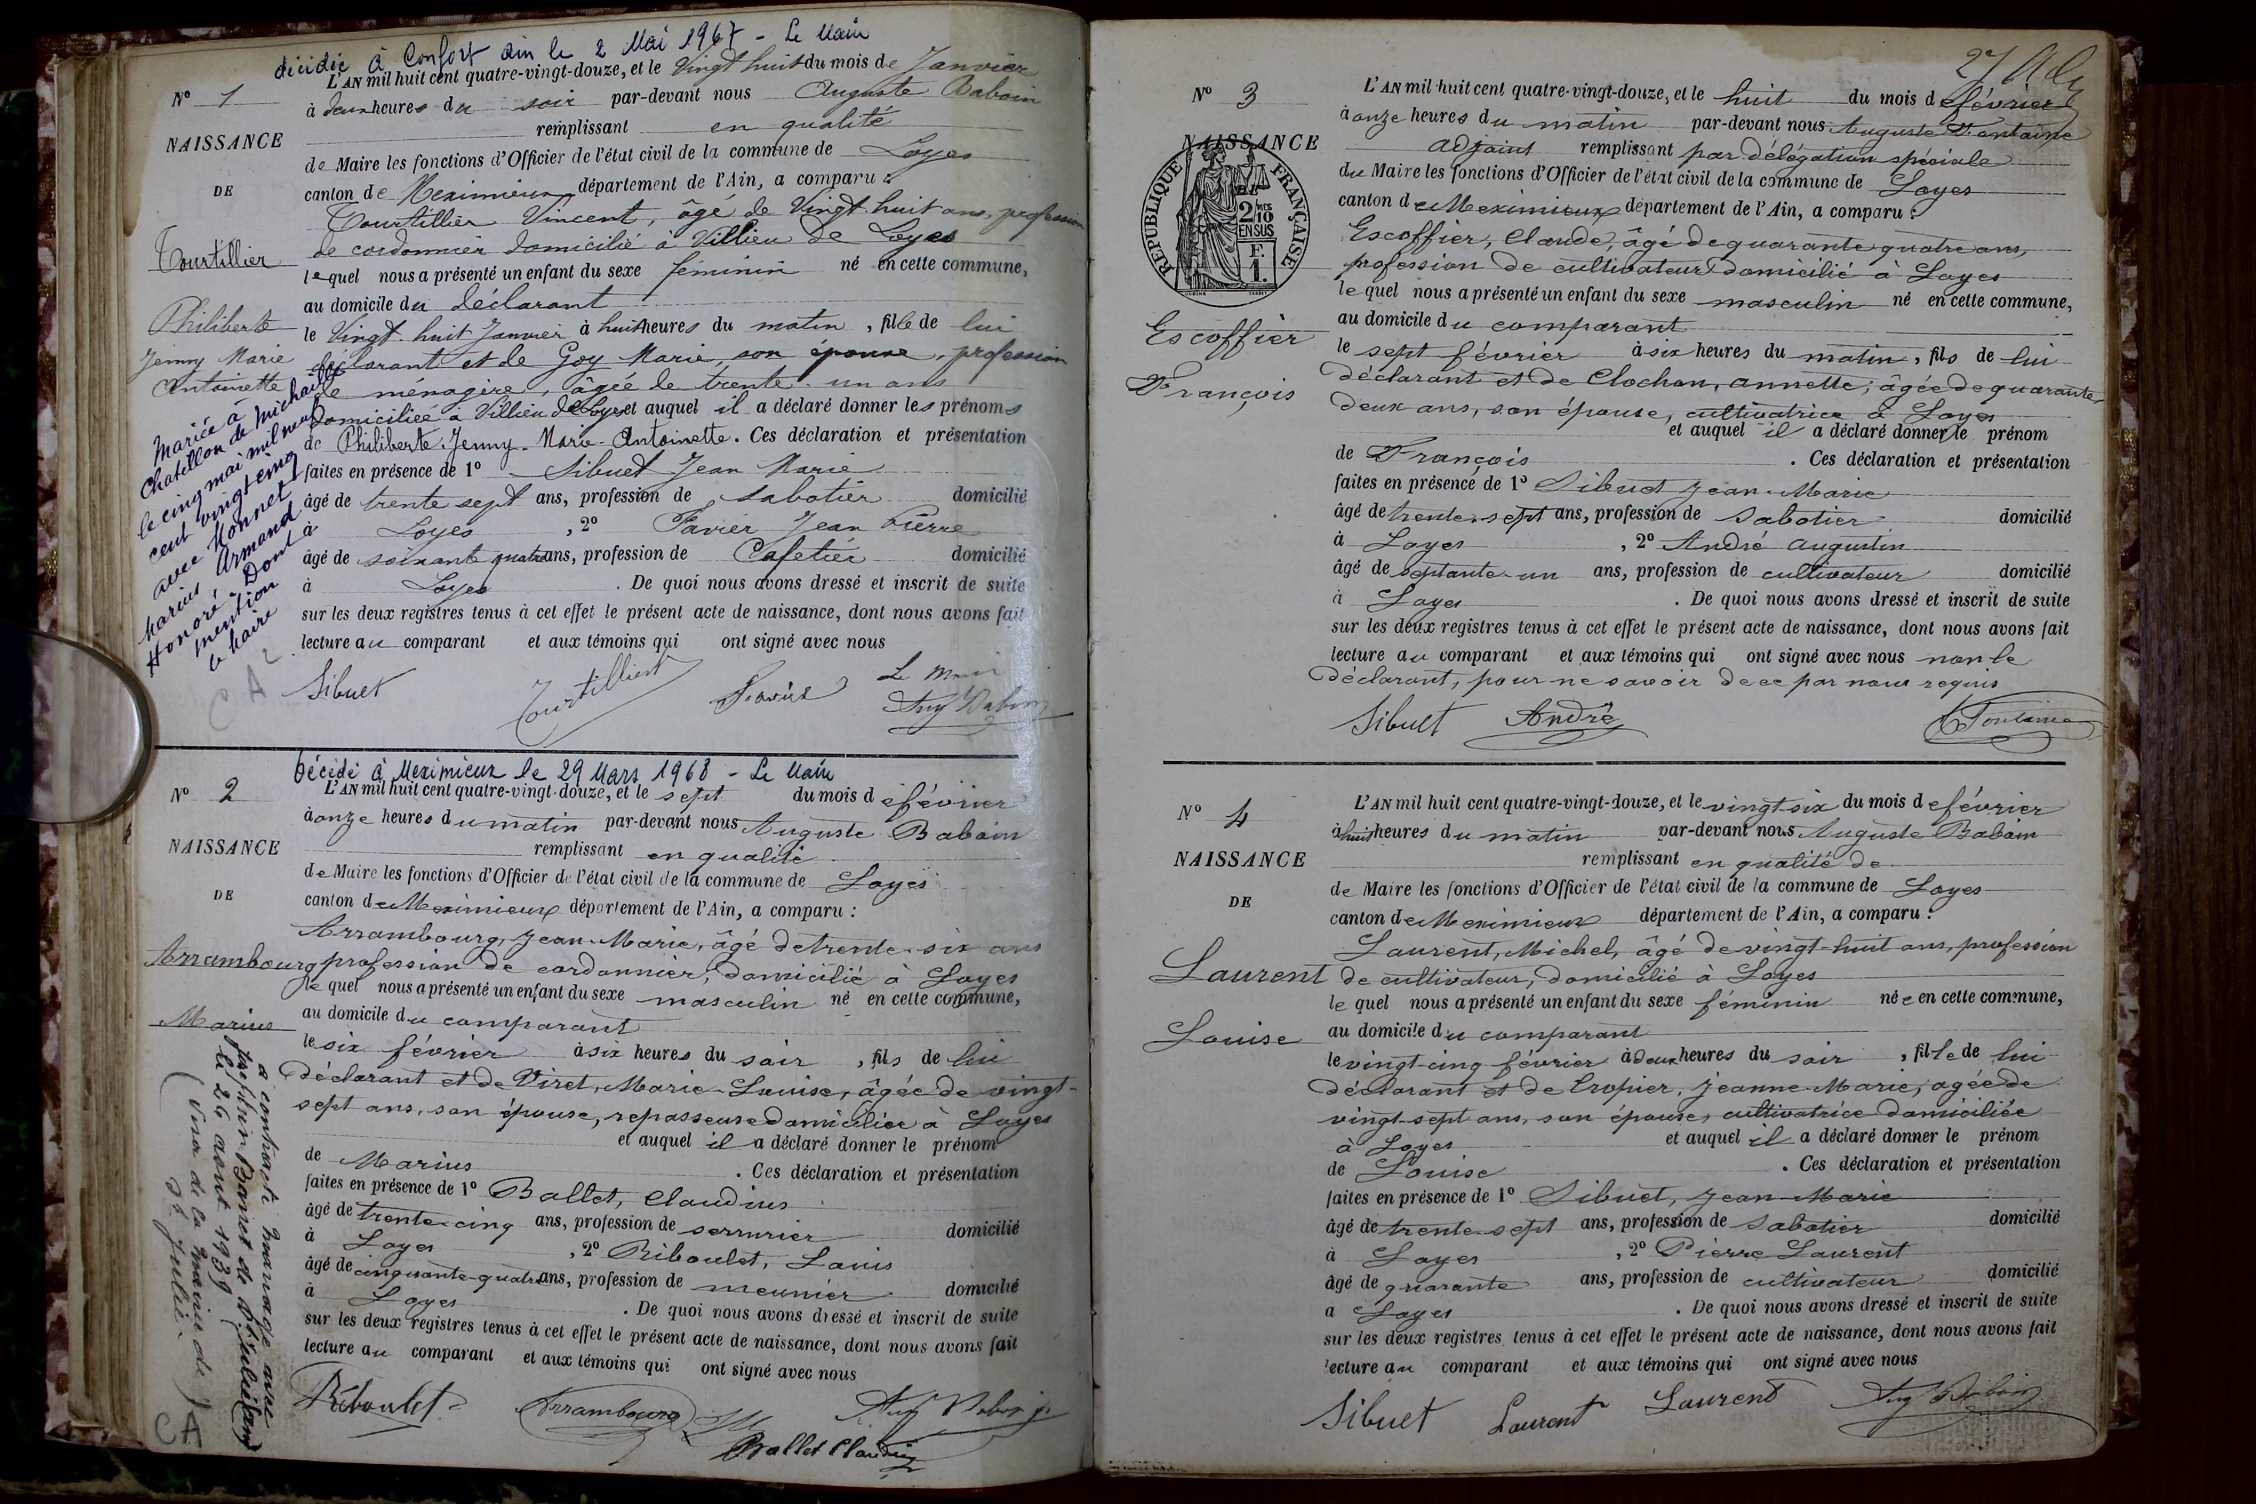 décédée à Confort Ain le 2 Mai 1967 - Le Maire
N° 1
NAISSANCE
DE
Tourtillier
Philiberte
Jenny Marie
Antoinette
Mariée à
Chatillon de Michaille
le cinq mai mil neuf
cent vingt cinq
avec Monnet
Marius Armand
Honoré. Dont à
mention
le Maire
CA 2
L'AN mil huit cent quatre-vingt-douze, et le Vingt huit du mois de Janvier
à deux heures du soir par-devant nous Auguste Baboin
remplissant en qualité
de Maire les fonctions d'Officier de l'état civil de la commune de Loyes
canton de Meximieux département de l'Ain, a comparu :
Tourtillier Vincent, âgé de Vingt-huit ans, profession
de cordonnier domicilié à Villieu de Loyes
lequel nous a présenté un enfant du sexe féminin né en cette commune,
au domicile du déclarant
le Vingt-huit Janvier à huit heures du matin, fille de lui
déclarant et de Goy Marie, son épouse, profession
de ménagère, âgée de trente-un ans
domiciliée à Villieu de Loyes et auquel il a déclaré donner les prénoms
de Philiberte-Jenny-Marie-Antoinette. Ces déclaration et présentation
faites en présence de 1° Sibuet Jean Marie
âgé de trente sept ans, profession de sabotier domicilié
à Loyes, 2° Favier Jean Pierre
âgé de soixante quatre ans, profession de Cafetier domicilié
à Loyes. De quoi nous avons dressé et inscrit de suite
sur les deux registres tenus à cet effet le présent acte de naissance, dont nous avons fait
lecture au comparant et aux témoins qui ont signé avec nous
Sibuet Tourtillier Favier Le Maire
Aug Baboin
Décédé à Meximieux le 29 Mars 1968 - Le Maire
N° 2
NAISSANCE
DE
Arrambourg
Marius
a contracté mariage avec
Joséphine Bannet
le 26 août 1939
(Visa de la Mairie de
St Julie
CA
L'AN mil huit cent quatre-vingt-douze, et le sept du mois de février
à onze heures du matin par-devant nous Auguste Baboin
remplissant en qualité
de Maire les fonctions d'Officier de l'état civil de la commune de Loyes
canton de Meximieux département de l'Ain, a comparu :
Arrambourg, Jean-Marie, âgé de trente-six ans
profession de cordonnier, domicilié à Loyes
lequel nous a présenté un enfant du sexe masculin né en cette commune,
au domicile du comparant
le six février à six heures du soir, fils de lui
déclarant et de Viret, Marie-Louise, âgée de vingt-
sept ans, son épouse, repasseuse domiciliée à Loyes
et auquel il a déclaré donner le prénom
de Marius. Ces déclaration et présentation
faites en présence de 1° Ballet, Claudius
âgé de trente-cinq ans, profession de serrurier domicilié
à Loyes, 2° Riboulet, Louis
âgé de cinquante-quatre ans, profession de meunier domicilié
à Loyes. De quoi nous avons dressé et inscrit de suite
sur les deux registres tenus à cet effet le présent acte de naissance, dont nous avons fait
lecture au comparant et aux témoins qui ont signé avec nous
Riboulet Arrambourg Aug Baboin
Ballet Claudius
N° 3
NAISSANCE
RÉPUBLIQUE FRANÇAISE
2/10 EN SUS
F. 1.
Escoffier
François
L'AN mil huit cent quatre-vingt-douze, et le huit du mois de février
à onze heures du matin par-devant nous Auguste Fontaine
adjoint remplissant par délégation spéciale
du Maire les fonctions d'Officier de l'état civil de la commune de Loyes
canton de Meximieux département de l'Ain, a comparu :
Escoffier, Claude, âgé de quarante-quatre ans,
profession de cultivateur domicilié à Loyes
lequel nous a présenté un enfant du sexe masculin né en cette commune,
au domicile du comparant
le sept février à six heures du matin, fils de lui
déclarant et de Clochon, annette, âgée de quarante-
deux ans, son épouse, cultivatrice à Loyes
et auquel il a déclaré donner le prénom
de François. Ces déclaration et présentation
faites en présence de 1° Sibuet Jean-Marie
âgé de trente-sept ans, profession de sabotier domicilié
à Loyes, 2° André augustin
âgé de septante-un ans, profession de cultivateur domicilié
à Loyes. De quoi nous avons dressé et inscrit de suite
sur les deux registres tenus à cet effet le présent acte de naissance, dont nous avons fait
lecture au comparant et aux témoins qui ont signé avec nous non le
déclarant, pour ne savoir de ce par nous requis
Sibuet André Fontaine
N° 4
NAISSANCE
DE
Laurent
Louise
L'AN mil huit cent quatre-vingt-douze, et le vingt-six du mois de février
à huit heures du matin par-devant nous Auguste Baboin
remplissant en qualité de
de Maire les fonctions d'Officier de l'état civil de la commune de Loyes
canton de Meximieux département de l'Ain, a comparu :
Laurent, Michel, âgé de vingt-huit ans, profession
de cultivateur, domicilié à Loyes
lequel nous a présenté un enfant du sexe féminin née en cette commune,
au domicile du comparant
le vingt-cinq février à deux heures du soir, fille de lui
déclarant et de Cropier, Jeanne-Marie, agée de
vingt-sept ans, son épouse, cultivatrice domiciliée
à Loyes et auquel il a déclaré donner le prénom
de Louise. Ces déclaration et présentation
faites en présence de 1° Sibuet, Jean-Marie
âgé de trente-sept ans, profession de sabotier domicilié
à Loyes, 2° Pierre Laurent
âgé de quarante ans, profession de cultivateur domicilié
a Loyes. De quoi nous avons dressé et inscrit de suite
sur les deux registres tenus à cet effet le présent acte de naissance, dont nous avons fait
lecture au comparant et aux témoins qui ont signé avec nous
Sibuet Laurent Laurent Aug Baboin